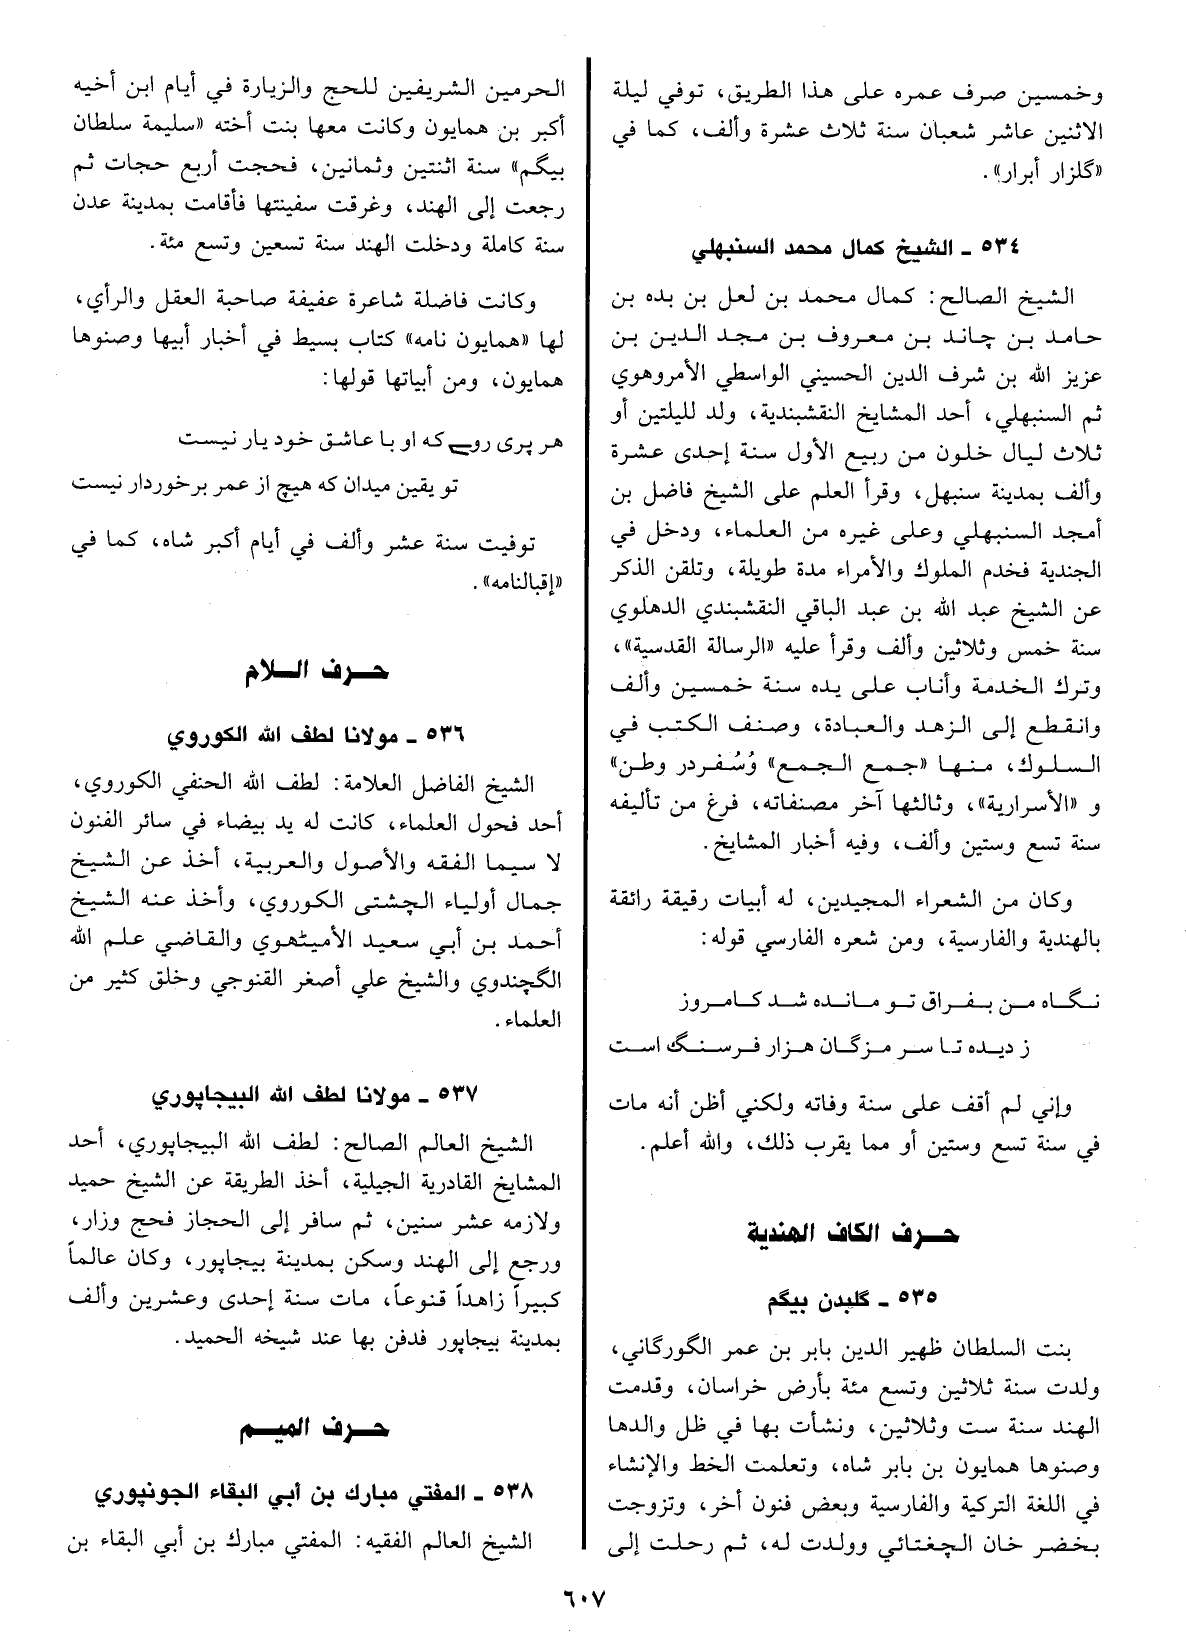 وخمسين صرف عمره على هذا الطريق، توفي ليلة
الاثنين عاشر شعبان سنة ثلاث عشرة وألف، كما في
«گلزار أبرار».
٥٣٤ ـ الشيخ كمال محمد السنبهلي
الشيخ الصالح: كمال محمد بن لعل بن بده بن
حامد بن چاند بن معروف بن مجد الدين بن
عزيز الله بن شرف الدين الحسيني الواسطي الأمروهوي
ثم السنبهلي، أحد المشايخ النقشبندية، ولد لليلتين أو
ثلاث ليال خلون من ربيع الأول سنة إحدى عشرة
وألف بمدينة سنبهل، وقرأ العلم على الشيخ فاضل بن
أمجد السنبهلي وعلى غيره من العلماء، ودخل في
الجندية فخدم الملوك والأمراء مدة طويلة، وتلقن الذكر
عن الشيخ عبد الله بن عبد الباقي النقشبندي الدهلوي
سنة خمس وثلاثين وألف وقرأ عليه «الرسالة القدسية»،
وترك الخدمة وأناب على يده سنة خمسين وألف
وانقطع إلى الزهد والعبادة، وصنف الكتب في
السلوك، منها «جمع الجمع» وُسُفردر وطن»
و «الأسرارية»، وثالثها آخر مصنفاته، فرغ من تأليفه
سنة تسع وستين وألف، وفيه أخبار المشايخ.
وكان من الشعراء المجيدين، له أبيات رقيقة رائقة
بالهندية والفارسية، ومن شعره الفارسي قوله:
نگاه من بفراق تو مانده شد كامروز
ز ديده تا سر مزگان هزار فرسنگ است
وإني لم أقف على سنة وفاته ولكني أظن أنه مات
في سنة تسع وستين أو مما يقرب ذلك، والله أعلم.
حرف الكاف الهندية
٥٣٥ ـ گلبدن بيگم
بنت السلطان ظهير الدين بابر بن عمر الگورگاني،
ولدت سنة ثلاثين وتسع مئة بأرض خراسان، وقدمت
الهند سنة ست وثلاثين، ونشأت بها في ظل والدها
وصنوها همايون بن بابر شاه، وتعلمت الخط والإنشاء
في اللغة التركية والفارسية وبعض فنون أخر، وتزوجت
بخضر خان الچغتائي وولدت له، ثم رحلت إلى
الحرمين الشريفين للحج والزيارة في أيام ابن أخيه
أكبر بن همايون وكانت معها بنت أخته «سليمة سلطان
بيگم» سنة اثنتين وثمانين، فحجت أربع حجات ثم
رجعت إلى الهند، وغرقت سفينتها فأقامت بمدينة عدن
سنة كاملة ودخلت الهند سنة تسعين وتسع مئة.
وكانت فاضلة شاعرة عفيفة صاحبة العقل والرأي،
لها «همايون نامه» كتاب بسيط في أخبار أبيها وصنوها
همايون، ومن أبياتها قولها:
هر پرى روے که او با عاشق خود یار نیست
تو یقین میدان که هیچ از عمر برخوردار نیست
توفيت سنة عشر وألف في أيام أكبر شاه، كما في
«إقبالنامه».
حرف اللام
٥٣٦ ـ مولانا لطف الله الكوروي
الشيخ الفاضل العلامة: لطف الله الحنفي الكوروي،
أحد فحول العلماء، كانت له يد بيضاء في سائر الفنون
لا سيما الفقه والأصول والعربية، أخذ عن الشيخ
جمال أولياء الچشتي الكوروي، وأخذ عنه الشيخ
أحمد بن أبي سعيد الأميٹهوي والقاضي علم الله
الگچندوي والشيخ علي أصغر القنوجي وخلق كثير من
العلماء.
٥٣٧ ـ مولانا لطف الله البيجاپوري
الشيخ العالم الصالح: لطف الله البيجاپوري، أحد
المشايخ القادرية الجيلية، أخذ الطريقة عن الشيخ حميد
ولازمه عشر سنين، ثم سافر إلى الحجاز فحج وزار،
ورجع إلى الهند وسكن بمدينة بيجاپور، وكان عالماً
كبيراً زاهداً قنوعاً، مات سنة إحدى وعشرين وألف
بمدينة بيجاپور فدفن بها عند شيخه الحميد.
حرف الميم
٥٣٨ ـ المفتي مبارك بن أبي البقاء الجونپوري
الشيخ العالم الفقيه: المفتي مبارك بن أبي البقاء بن
٦٠٧